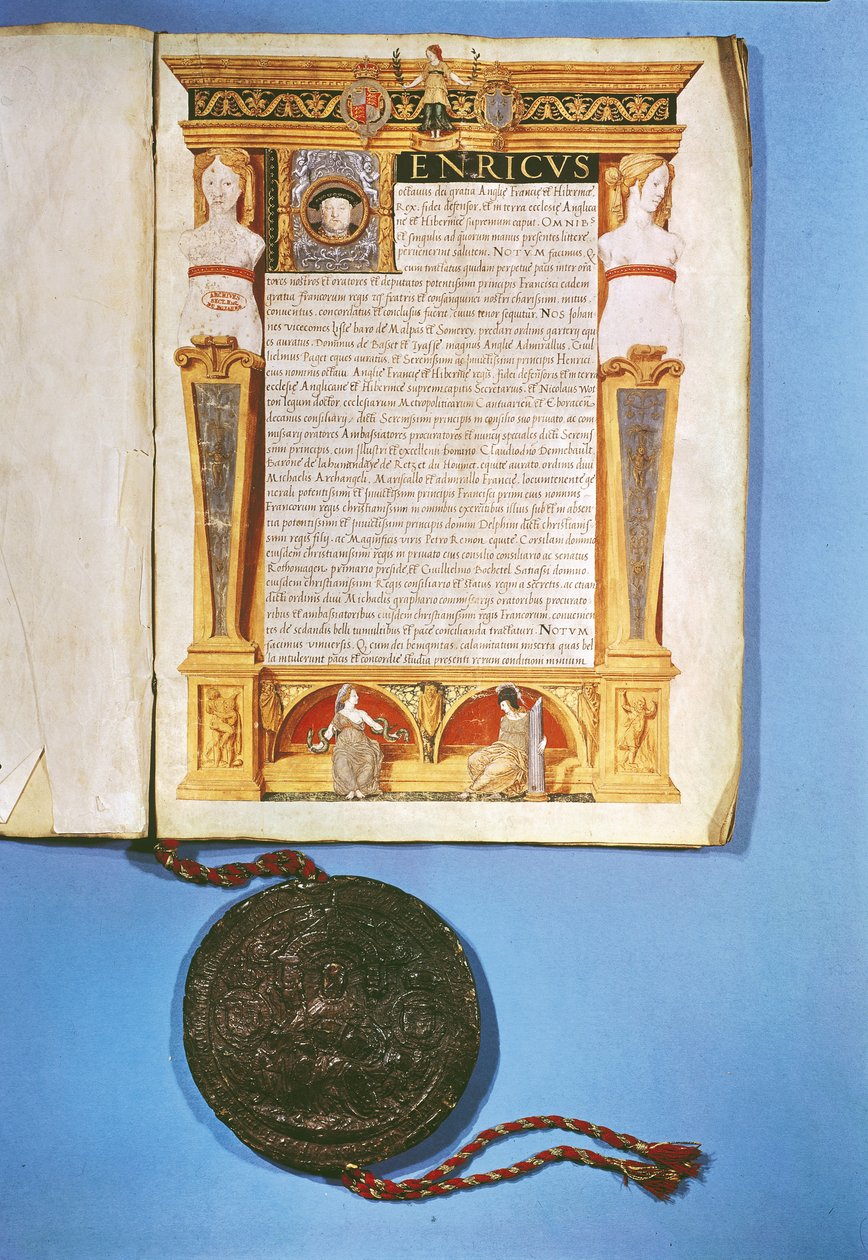 HENRICVS
octauus dei gratia Anglię Francię et Hibernię
Rex, fidei defensor, et in terra ecclesię Anglica
nę et Hibernicę supremum caput. OMNIBS
et singulis ad quorum manus presentes litterę
peruenerint salutem. NOTVM facimus, Q
cum tractatus quidam perpetuę pacis inter ora
tores nostros et oratores et deputatos potentissimi principis Francisci eadem
gratia francorum regis fratris et consanguinei nostri charissimi, initus,
conuentus, concordatus et conclusus fuerit, cuius tenor sequitur. NOS Johan
nes vicecomes Lisle baro de Malpas et Somerey, preclari ordinis garterij equ
es auratus, Dominus de Basset et Tyasse, magnus Anglię Admirallus, Guil
lielmus Paget eques auratus, et Serenissimi ac Jnuictissimi principis Henrici
eius nominis octaui Anglię Francię et Hibernię regis, fidei defensoris et in terra
ecclesię Anglicanę et Hibernicę supremi capitis Secretarius, et Nicolaus Wot
ton legum doctor, ecclesiarum Metropoliticarum Cantuarień et Eboraceń
decanus consiliarij, dicti Serenissimi principis in consilio suo priuato, ac com
missarij oratores Ambassiatores procuratores et nuncij speciales dicti Serenis
simi principis, cum Illustri et excellenti domino Claudio Dennebault,
Barone de la hunauldaye de Retz et du Houmet, equite aurato, ordinis diui
Michaelis Archangeli, Mariscallo et admirallo Francię, locumtenente ge
nerali potentissimi et Jnuictissimi principis Francisci primi eius nominis
Francorum regis christianissimi in omnibus exercitibus illius sub et in absen
tia potentissimi et Jnuictissimi principis domini Delphini dicti christianis
simi regis filij, ac Magnificis viris Petro Remon equite Corsilani domino
eiusdem christianissimi regis in priuato eius consilio consiliario ac senatus
Rothomagen primario preside, et Guillielmo Bochetel Satiassi domino,
eiusdem christianissimi Regis consiliario et status regni a secretis, ac etiam
dicti ordinis diui Michaelis graphario commissarijs oratoribus procurato
ribus et ambassiatoribus eiusdem christianissimi regis Francorum, conuenien
tes de sedandis belli tumultibus et pace concilianda tractaturi. NOTVM
facimus vniuersis, Q cum dei benignitas, calamitatum miserta quas bel
la intulerunt pacis et concordię studia presenti rerum conditioni
ARCHIVES